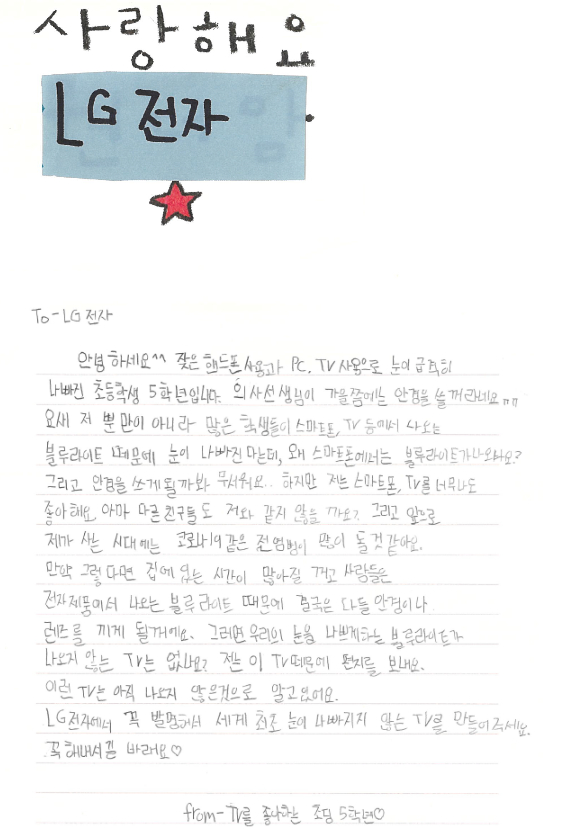 사랑해요
LG 전자
To-LG 전자
안녕하세요^^ 잦은 핸드폰 사용과 PC, TV 사용으로 눈이 급격히
나빠진 초등학생 5학년입니다. 의사선생님이 가을쯤에는 안경을 쓸꺼라네요ㅠㅠ
요새 저 뿐만이 아니라 많은 학생들이 스마트폰, TV 등에서 나오는
블루라이트 때문에 눈이 나빠진다는데, 왜 스마트폰에서는 블루라이트가 나오나요?
그리고 안경을 쓰게 될까봐 무서워요.. 하지만 저는 스마트폰, TV를 너무나도
좋아해요. 아마 다른 친구들도 저와 같지 않을까요? 그리고 앞으로
제가 사는 시대에는 코로나19같은 전염병이 많이 돌것 같아요.
만약 그렇다면 집에 있는 시간이 많아질 꺼고 사람들은
전자제품에서 나오는 블루라이트 때문에 결국은 다들 안경이나
렌즈를 끼게 될거에요. 그러면 우리의 눈을 나쁘게하는 블루라이트가
나오지 않는 TV는 없나요? 저는 이 TV때문에 편지를 보내요.
이런 TV는 아직 나오지 않은것으로 알고있어요.
LG전자에서 꼭 발명해서 세계 최초 눈이 나빠지지 않는 TV를 만들어주세요.
꼭 해내시길 바래요♡
from-TV를 좋아하는 초딩 5학년♡